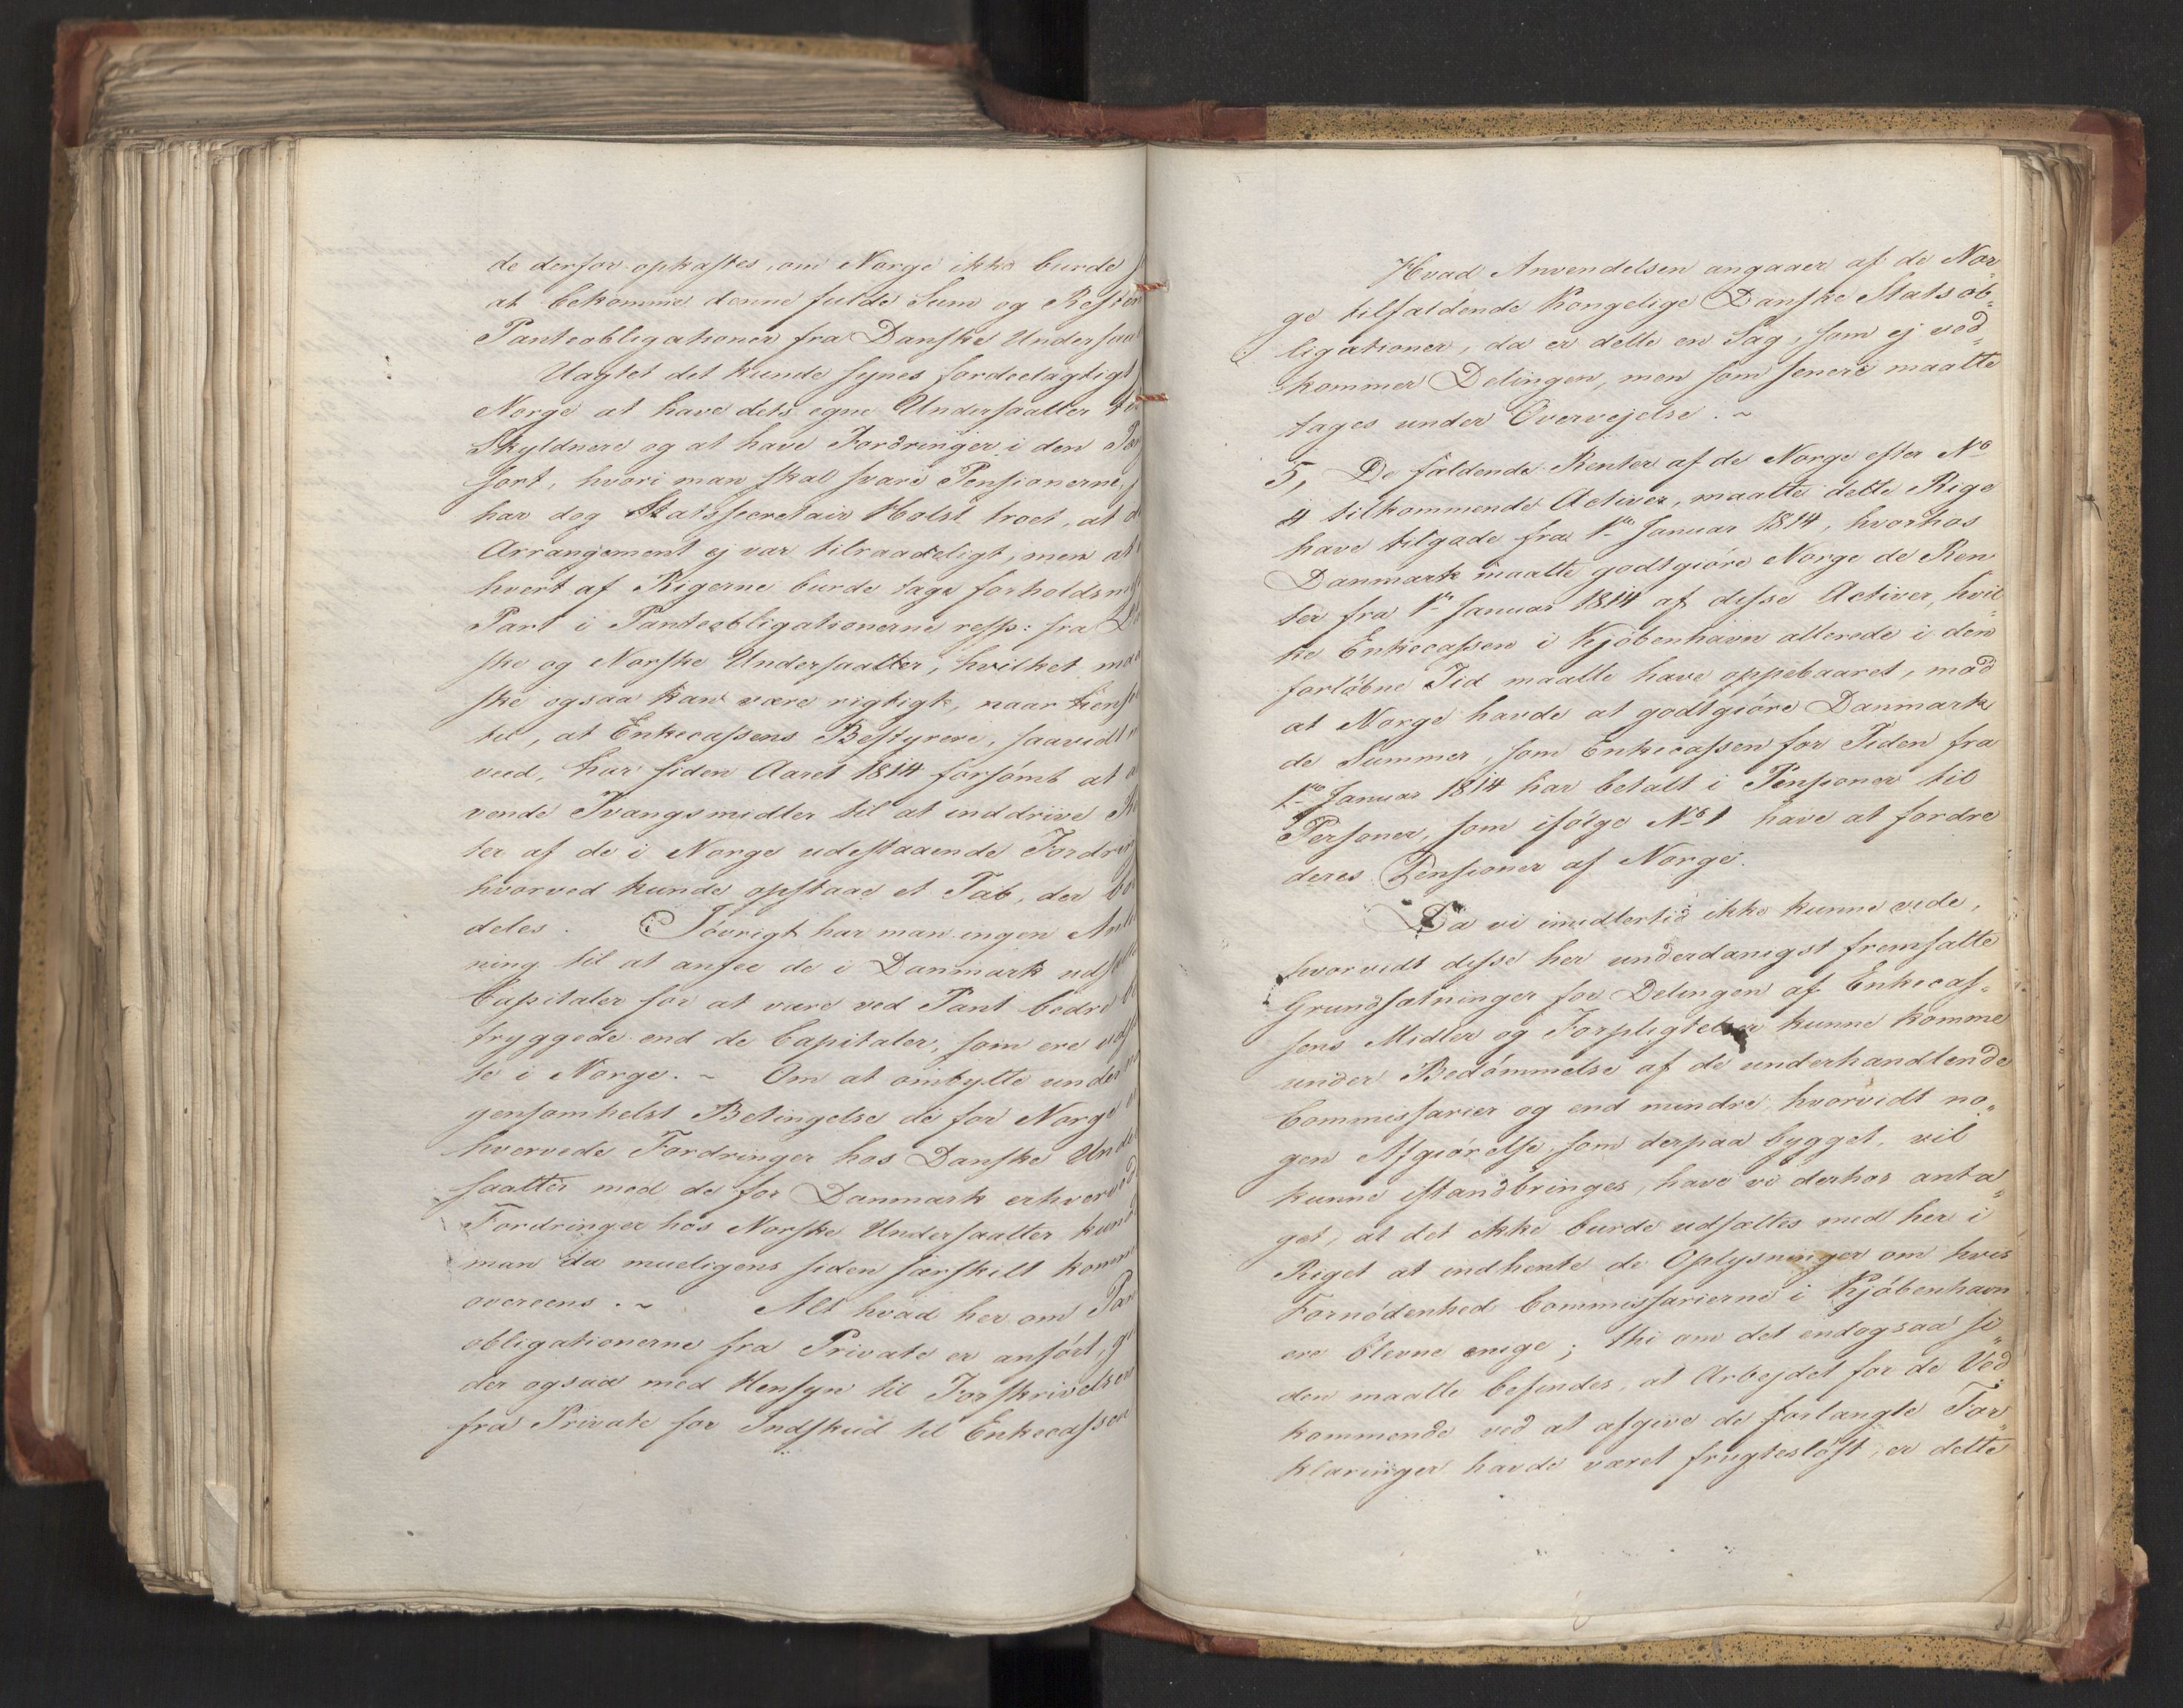 de derfor opkastes, om Norge ikke burde
at bekomme denne fulde Sum og Resten
Panteobligationer fra Danske Undersaat
Uagtet det kunde synes fordeelagtigt
Norge at have dets egne Undersaatter til
Skyldnere og at have Fordringer i den
sort, hvori man skal svare Pensionerne,
har dog Statssecretair Holst troet, at
Arrangement ej var tilraadeligt, men at
hvert af Rigerne burde tage forholdsm
Part i Panteobligationerne resp: fra
ske og Norske Undersaatter, hvilket maa
ske ogsaa kan være rigtigt, naar hense
til, at Enkecassens Bestyrere, saavidt
vied, har siden Aaret 1814 forsömt at
vende Tvangsmidler til at inddrive
ter af de i Norge udestaaende Fordrin
hvorved kunde opstaae et Tab, der bör
deles. Iövrigt har man ingen Anled
ning til at ansee de i Danmark udsatte
Capitaler for at være ved Pant bedre be
tryggede end de Capitaler, som ere udsat
te i Norge. ~ Om at ombytte under
gensomhelst Betingelse de for Norge er
hvervede Fordringer hos Danske Under
saatter med de for Danmark erhvervede
Fordringer hos Norske Undersaatter kunde
man da mueligens siden særskilt komme
overeens. ~ Alt hvad her om Pan
obligationerne fra Private er anfört, gi
der ogsaa med Hensyn til Forskrivelser
fra Private for Indskud til Enkecassen
Hvad Anvendelsen angaaer af de Nor
ge tilfaldende Kongelige Danske Statsob„
ligationer, da er dette en Sag, som ej ved„
kommer Delingen, men som senere maatte
tages under Overvejelse. ~
5, De faldende Renter af de Norge efter No
4 tilkommende Activer, maatte dette Rige
have tilgode fra 1ste Januar 1814, hvorhos
Danmark maatte godtgiöre Norge de Ren
ter fra 1ste Januar 1814 af disse Activer, hvil„
ke Enkecassen i Kjöbenhavn allerede i den
forlöbne Tid maatte have oppebaaret, mod
at Norge havde at godtgiöre Danmark
de Summer, som Enkecassen for Tiden fra
1ste Januar 1814 har betalt i Pensioner til
Personer, som ifölge No 1 have at fordre
deres Pensioner af Norge.
Da vi imidlertid ikke kunne vide,
hvorvidt disse her underdanigst fremsatte
Grundsætninger for Delingen af Enkecas„
sens Midler og Forpligtelser kunne komme
under Bedömmelse af de underhandlende
Commissarier og end mindre, hvorvidt no„
gen Afgiörelse, som derpaa bygget, vil
kunne istandbringes, have vi derhos anta„
get, at det ikke burde udsættes med her i
Riget at indhente de Oplysninger om hvis
Fornödenhed Commissarierne i Kjöbenhavn
ere blevne enige; thi om det endogsaa si„
den maatte befindes, at Arbejdet for de Ved„
kommende ved at afgive de forlangte For„
klaringer havde været frugteslöst, er dette